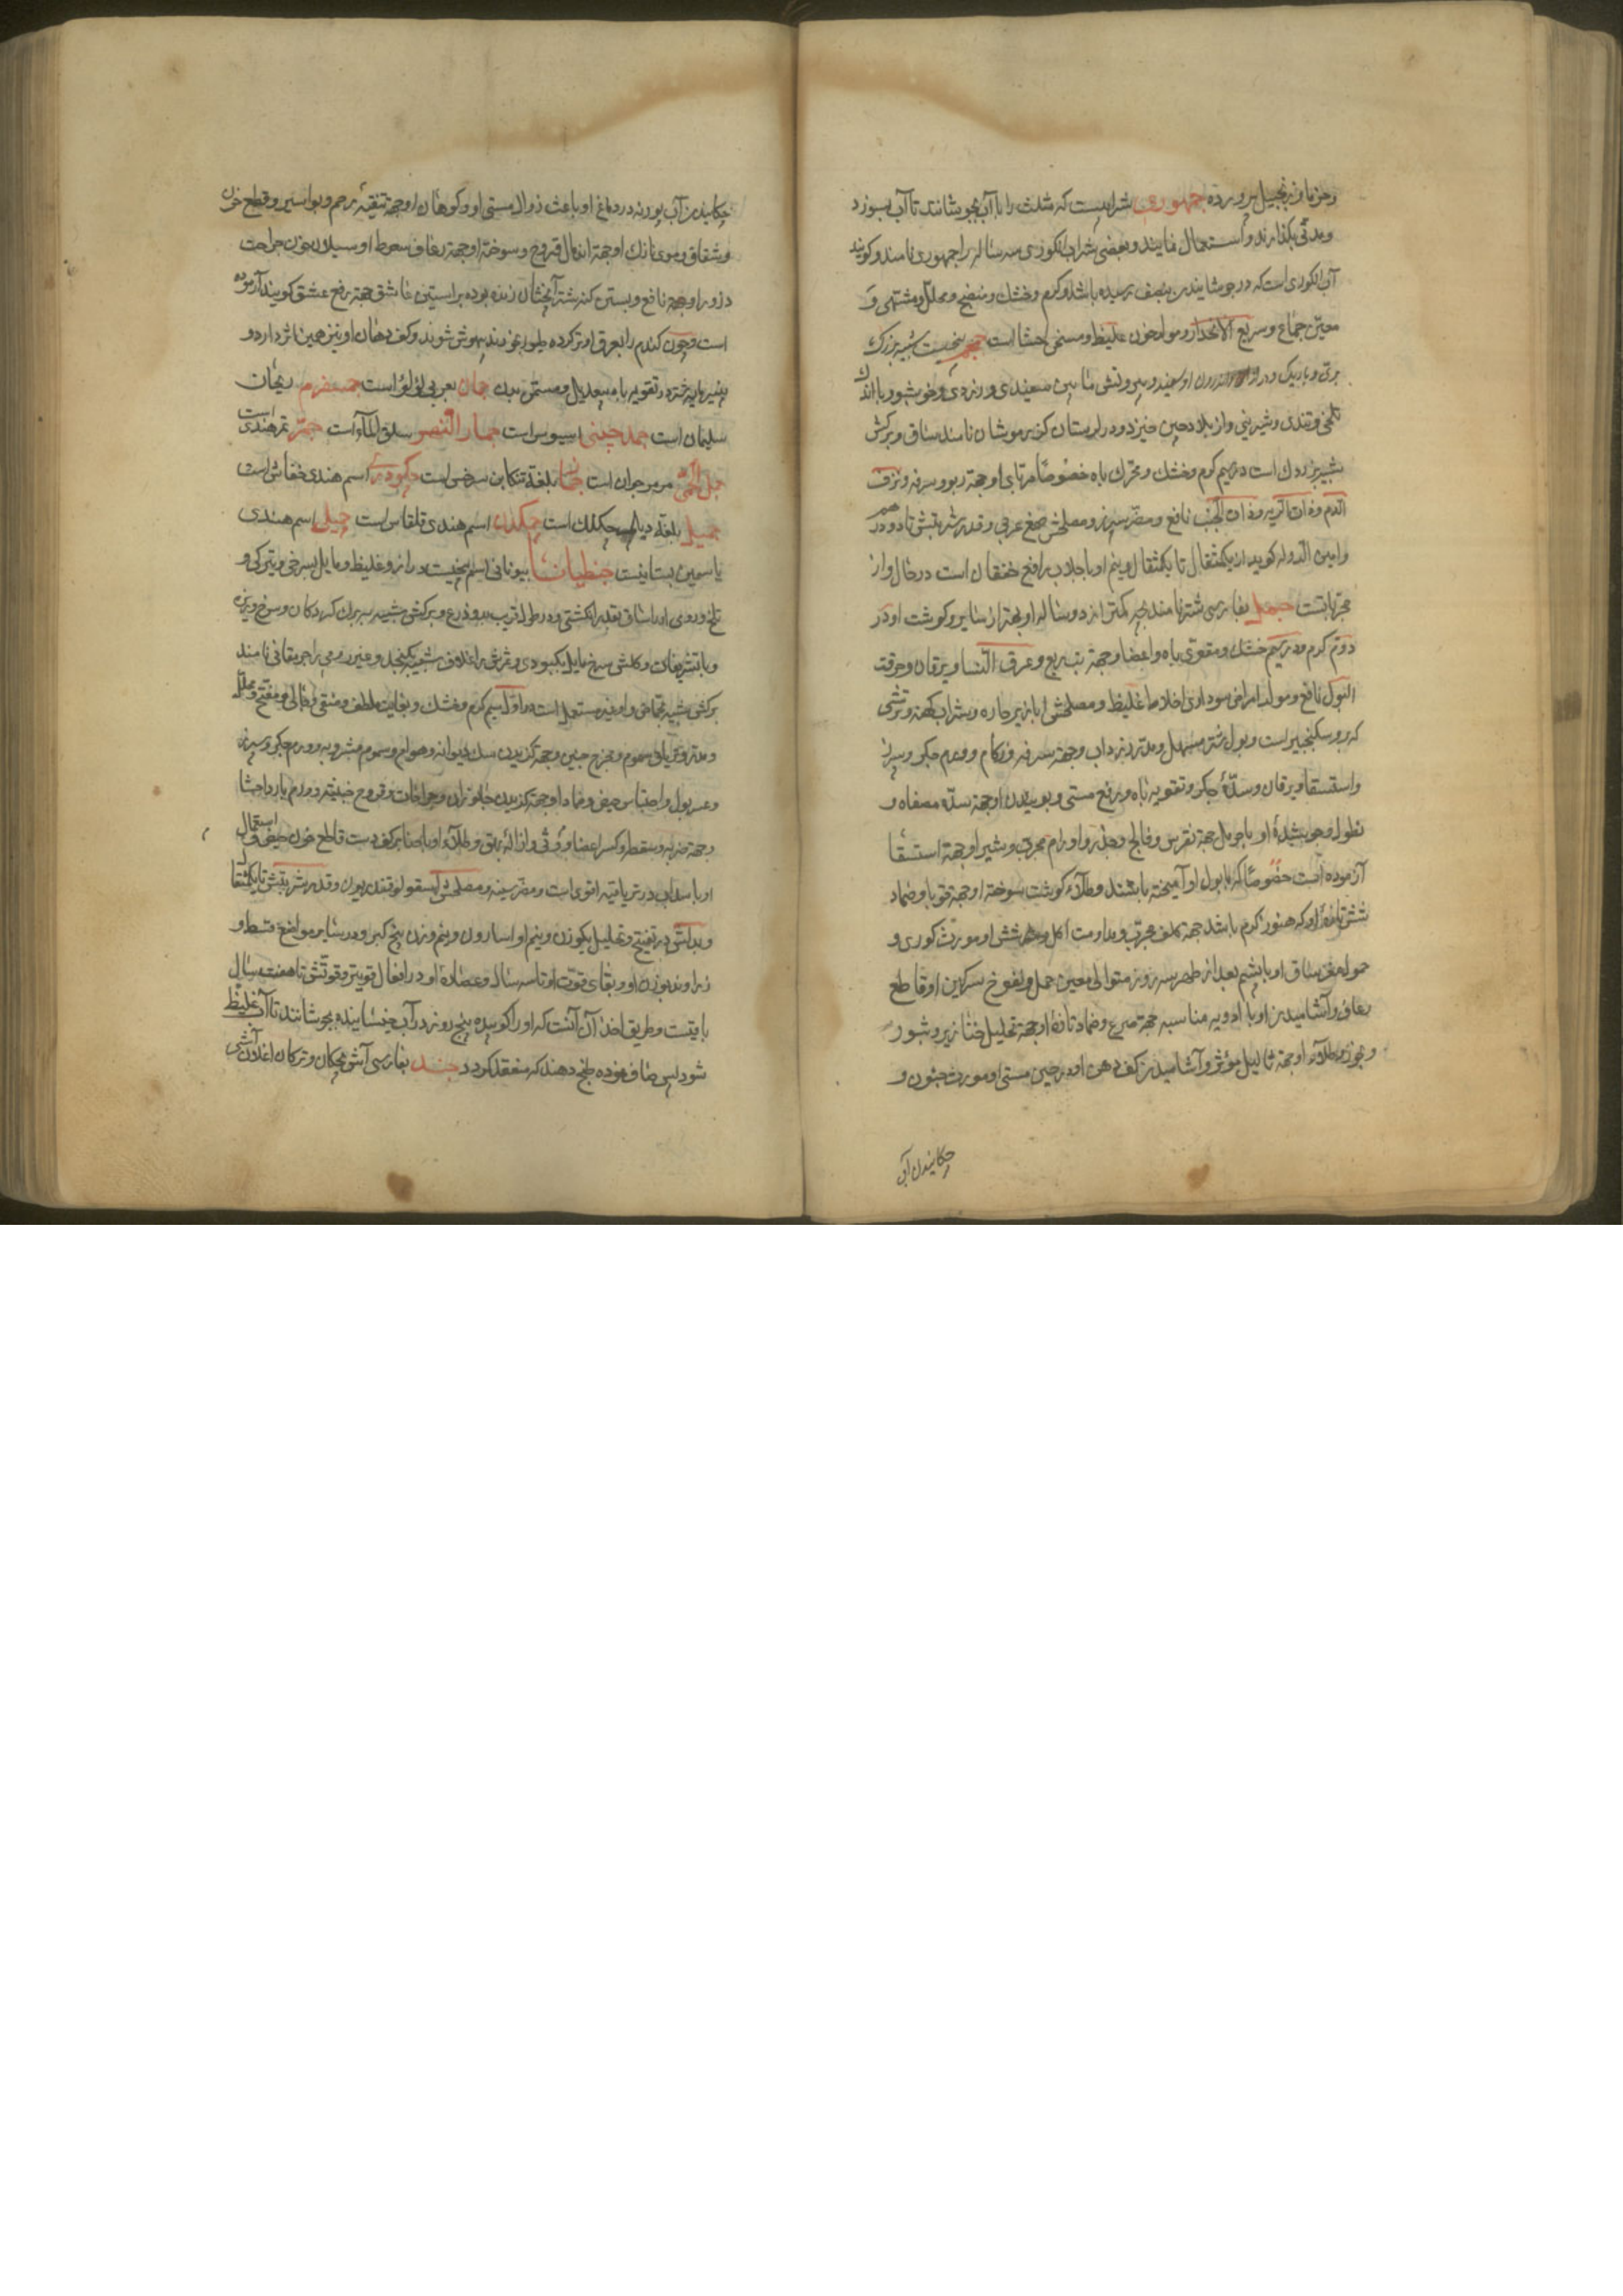 و جزمازنجبیل پرورده جمهوری شرابیست که مثلث را با آب بجوشانند تا آب بسوزد
و مدتی بگذارند و استعمال نمایند و بعضی شراب انکوری سه ساله را جمهوری نامند و کویند
آب انکوری است که در جوشانیدن بنصف رسیده باشد و کرم و خشک و منضج و محلل و مشتهی و
معین جماع و سریع الانحدار و مولد خون غلیظ و مسخن احشا است بیخیست شبیه بزردک
بری و باریک و در اندرون او سفید و بیرونش مابین سفیدی و زردی و خوشبو و با اندک
تلخی و تندی و شیرینی و از بلاد چین خیزد و در لرستان کزبر موشان نامند ساق و برکش
شبیه بزردک است در سیم کرم و خشک و محرک باه خصوصا مربای او جهة ربو و سرفه و نزف
الدم و ذات الریه و ذات الجنب نافع و مضر سپرز و مصلحش صمغ عربی و قدر شربتش تا دو درهم
و امین الدوله کوید از یکمثقال تا یکمثقال و نیم او با جلاب رافع خفقان است در حال و از
مجربات است جمل بفارسی شتر نامند بچه کمتر از دو ساله او بهتر از سایر و کوشت او در
دوم کرم و در سیم خشک و مقوی باه و اعضا و جهة تب ربع و عرق النسا و یرقان و حرقت
البول نافع و مولد امراض سوداوی اخلاط غلیظ و مصلحش ابازیر حاره و شراب کهنه و ترشی
که در سکنجبین است و بول شتر مسهل و مدر زرداب و جهة سرفه و زکام و ورم جکر و سپرز
و استسقا و یرقان و سدهٔ جکر و تقویه باه و رفع مستی و بوییدن او جهة سدهٔ مصفاه و
نطول و جوشیدهٔ او با جهة نقرس و فالج و خدر و اورام مجرب و شیر او جهة استسقا
آزموده است خصوصا که با بول او آمیخته باشند و طلاء کوشت سوخته او جهة قوبا و ضماد
شش تازهٔ او که هنوز کرم باشد جهة کلف مجرب و مداومت اکل شش او مورث کوری و
حمول مغز ساق او با پشم بعد از طهر سه روز متوالی معین حمل و نفوخ سرکین او قاطع
رعاف و آشامیدن او با ادویه مناسبه جهة صرع و ضماد تازهٔ او جهة تحلیل خنازیر و بثور
و بخور و طلاء او جهة ثالیل مؤثر و آشامیدن کف دهن او در حین مستی او مورث جنون و
چکانیدن آب
چکانیدن آب در دماغ او باعث زوال مستی او و کوهان او جهة تنقیهٔ رحم و بواسیر و قطع خون
و شقاق و موی نازک او جهة اندمال قروح و سوختهٔ او جهة رعاف سعوط او سیلان خون جراحت
ذرورا و جهة نافع و بستن کنه شتر آنچنان زنده بوده بر آستین عاشق جهة رفع عشق کویند آزموده
است و چون کندم را بعرق او تر کرده طیور بخورند بیهوش شوند و کف دهان او نیز همین اثر دارد و
پنیر مایه شتر در تقویه باه بیعدیل و مسمن بدن جمان بعربی لؤلؤ است جمسفرم ریحان
سلیمان است جمد چینی اسیوس است جمار النهر سلق الماء است جمر تمر هندی است
است بلغة تنکابن سرخس است جمکودر اسم هندی خفاش است
بلغة دیلم چکلک است جمکند اسم هندی قلقاس است جمیلی اسم هندی
یاسمین بستانیست جنطیانا بیونانی اسم بیخیست دراز و غلیظ و مایل بسرخی و تیرکی و
و با تشریفات و کلش سرخ مایل بکبودی و ثمرش در غلاف شبیه بکنجد و غیر رومی را جرمقانی نامند
و مدر و تریاق سموم و مخرج جنین و جهة کزیدن سک دیوانه و هوام و سموم مشروبه و ورم جکر و سپرز
و عسر بول و احتباس حیض و ضماد او جهة کزیدن جانوران و جراحات و قروح خبیثه و ورم بارد احشا
و جهة ضربه و سقطه و کسر اعضا و وثی و ازاله بهق و طلاء او با حنا بر کف دست قاطع خون حیض و استعمال
او با سداب در تریاقیه اقوی است و مضر سینه و مصلحش اسقولوقندریون و قدر شربتش تا یکمثقال
و بدلش در تفتیح و تحلیل یکوزن و نیم او اسارون و نیم وزن بیخ کبر و در سایر مواضع قسط و
زراوند بوزن او و بقای قوت او تا سه سال و عصارهٔ او در افعال قویتر و قوتش تا هفت سال
باقیست و طریق اخذ آن آنست که او را کوبیده پنج روز در آب خیسانیده بجوشانند تا آب غلیظ
شود پس صاف نموده طبخ دهند که منعقد کردد جند بفارسی آش بچکان و ترکان